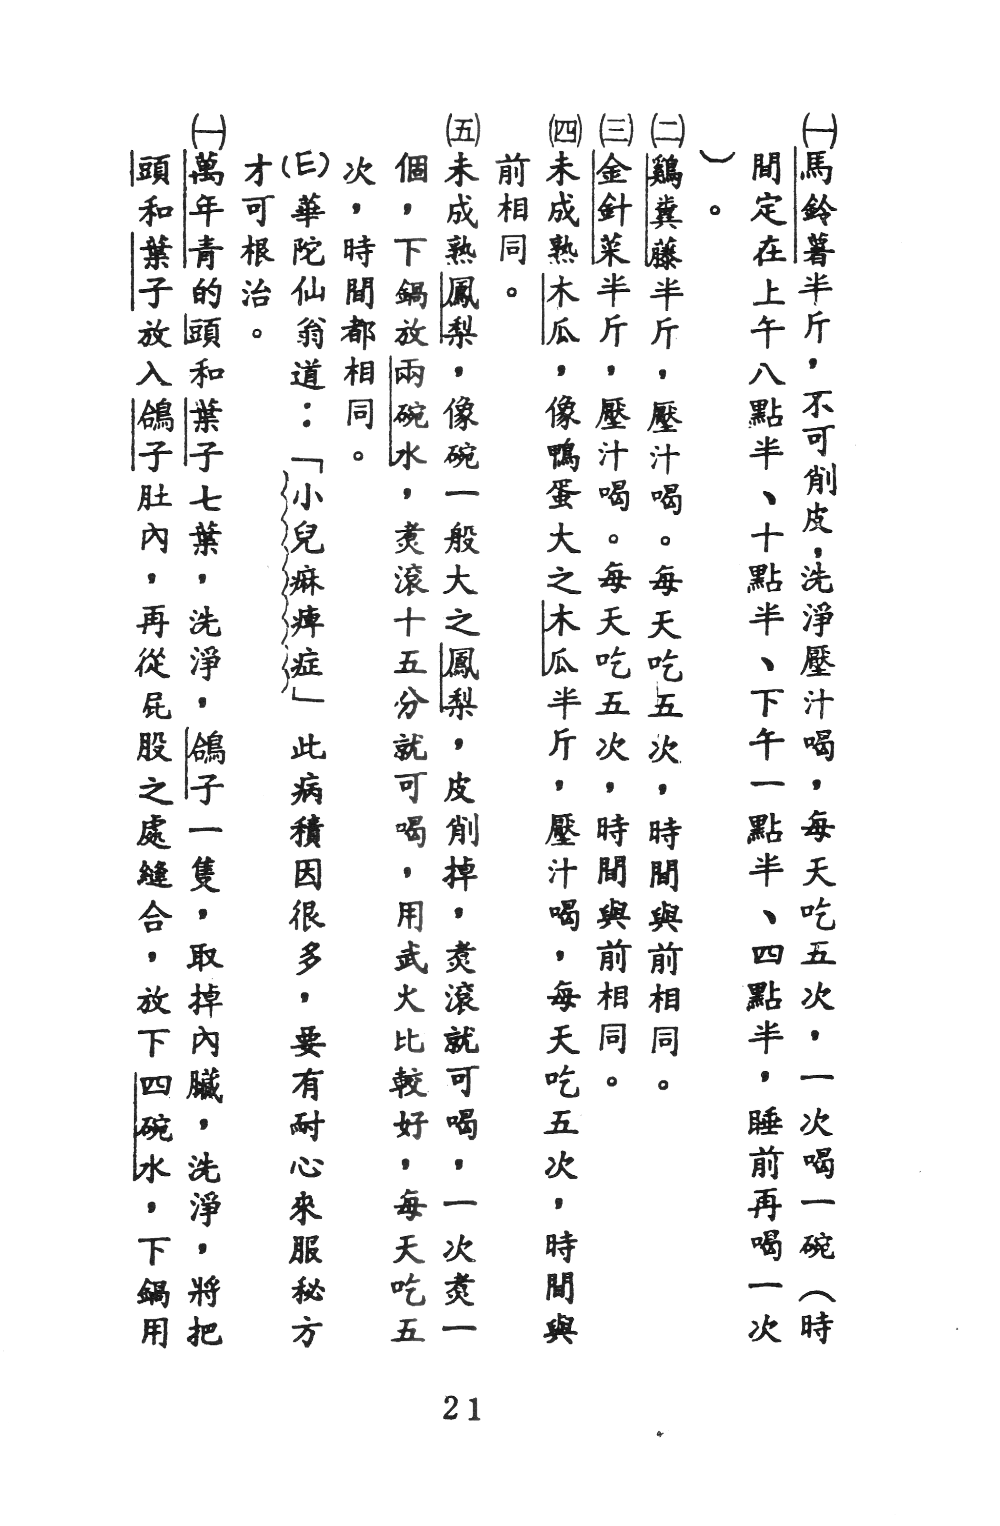 ㈠馬鈴薯半斤，不可削皮，洗淨壓汁喝，每天吃五次，一次喝一碗（時
間定在上午八點半、十點半、下午一點半、四點半，睡前再喝一次
）。
㈡鷄糞藤半斤，壓汁喝。每天吃五次，時間與前相同。
㈢金針菜半斤，壓汁喝。每天吃五次，時間與前相同。
㈣未成熟木瓜，像鴨蛋大之木瓜半斤，壓汁喝，每天吃五次，時間與
前相同。
㈤未成熟鳳梨，像碗一般大之鳳梨，皮削掉，煑滾就可喝，一次煑一
個，下鍋放兩碗水，煑滾十五分就可喝，用武火比較好，每天吃五
次，時間都相同。
(E)華陀仙翁道：「小兒痳痺症」此病積因很多，要有耐心來服秘方
才可根治。
㈠萬年青的頭和葉子七葉，洗淨，鴿子一隻，取掉內臟，洗淨，將把
頭和葉子放入鴿子肚內，再從屁股之處縫合，放下四碗水，下鍋用
21